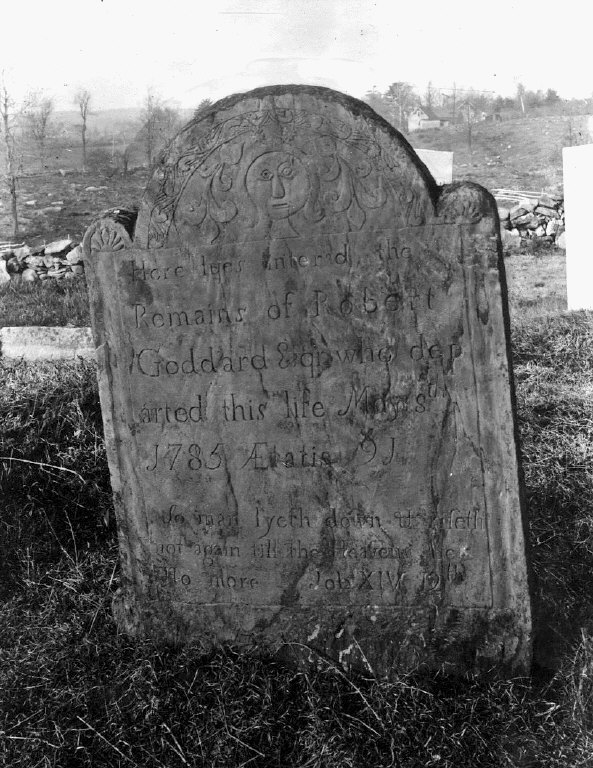 Here lyes inter'd the
Remains of Robert
Goddard Esqr. who dep
arted this life May
1785 Ætatis 91
So man lyeth down & riseth
not again till the Heavens be
No more Job XIV 12th